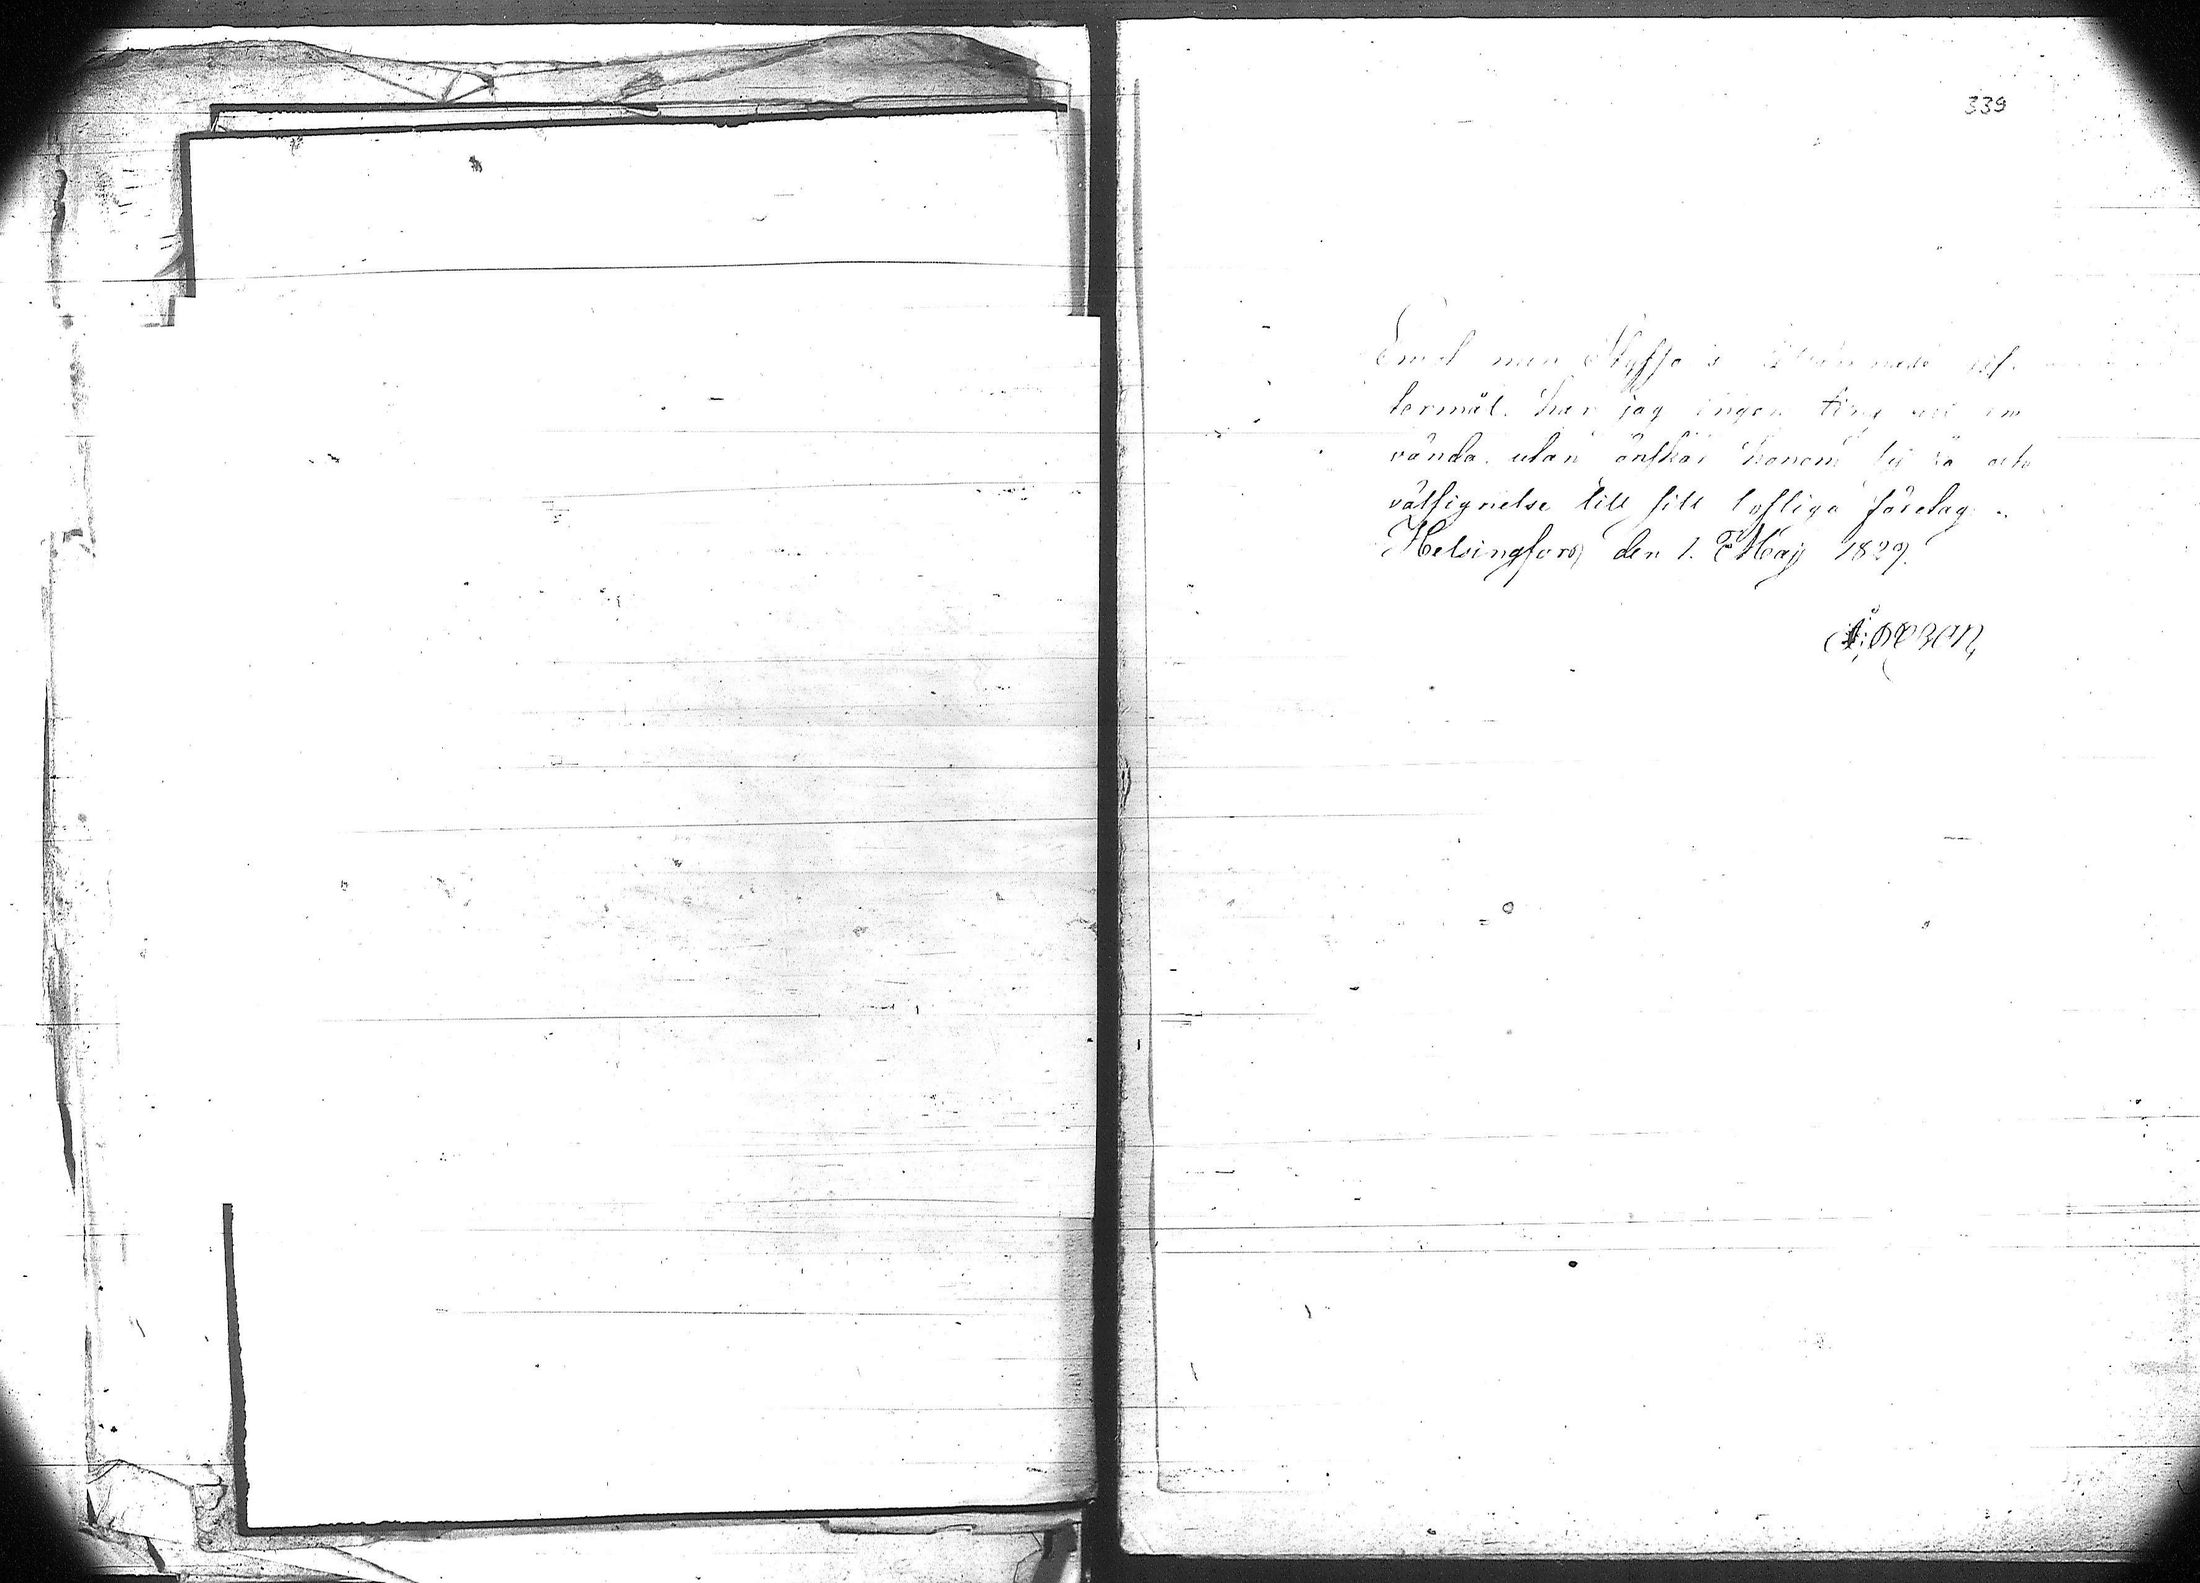 339
Emot min Styfso's ärnade gif-
termål har jag ingen ting att in
vända utan önskar honom lycka och
välsignelse till sitt lofliga företag.
Helsingfors den 1. Maj 1829.